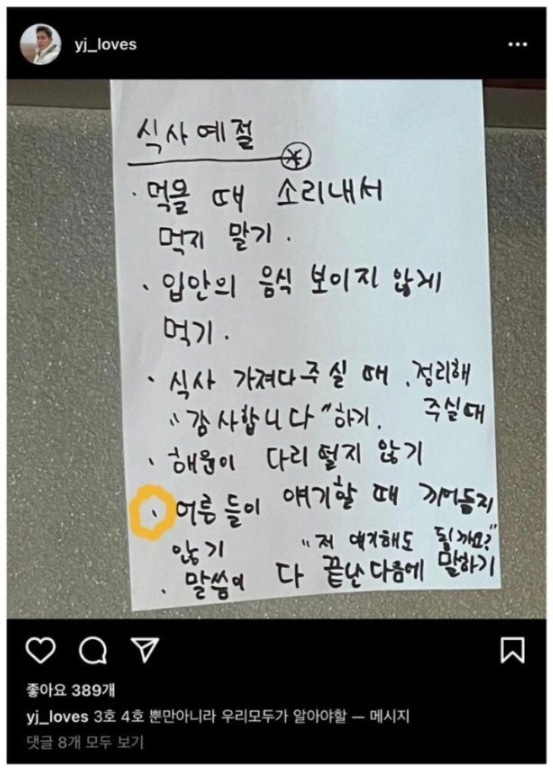 yj_loves
식사예절
· 먹을 때 소리내서
먹지 말기.
· 입안의 음식 보이지 않게
먹기.
· 식사 가져다주실 때, 정리해
주실때
"감사합니다"하기.
· 해원이 다리 떨지 않기
· 어른들이 얘기할 때 끼어들지
않기 "저 얘기해도 될까요?"
· 말씀이 다 끝난다음에 말하기
좋아요 389개
yj_loves 3호 4호 뿐만아니라 우리모두가 알아야할 — 메시지
댓글 8개 모두 보기